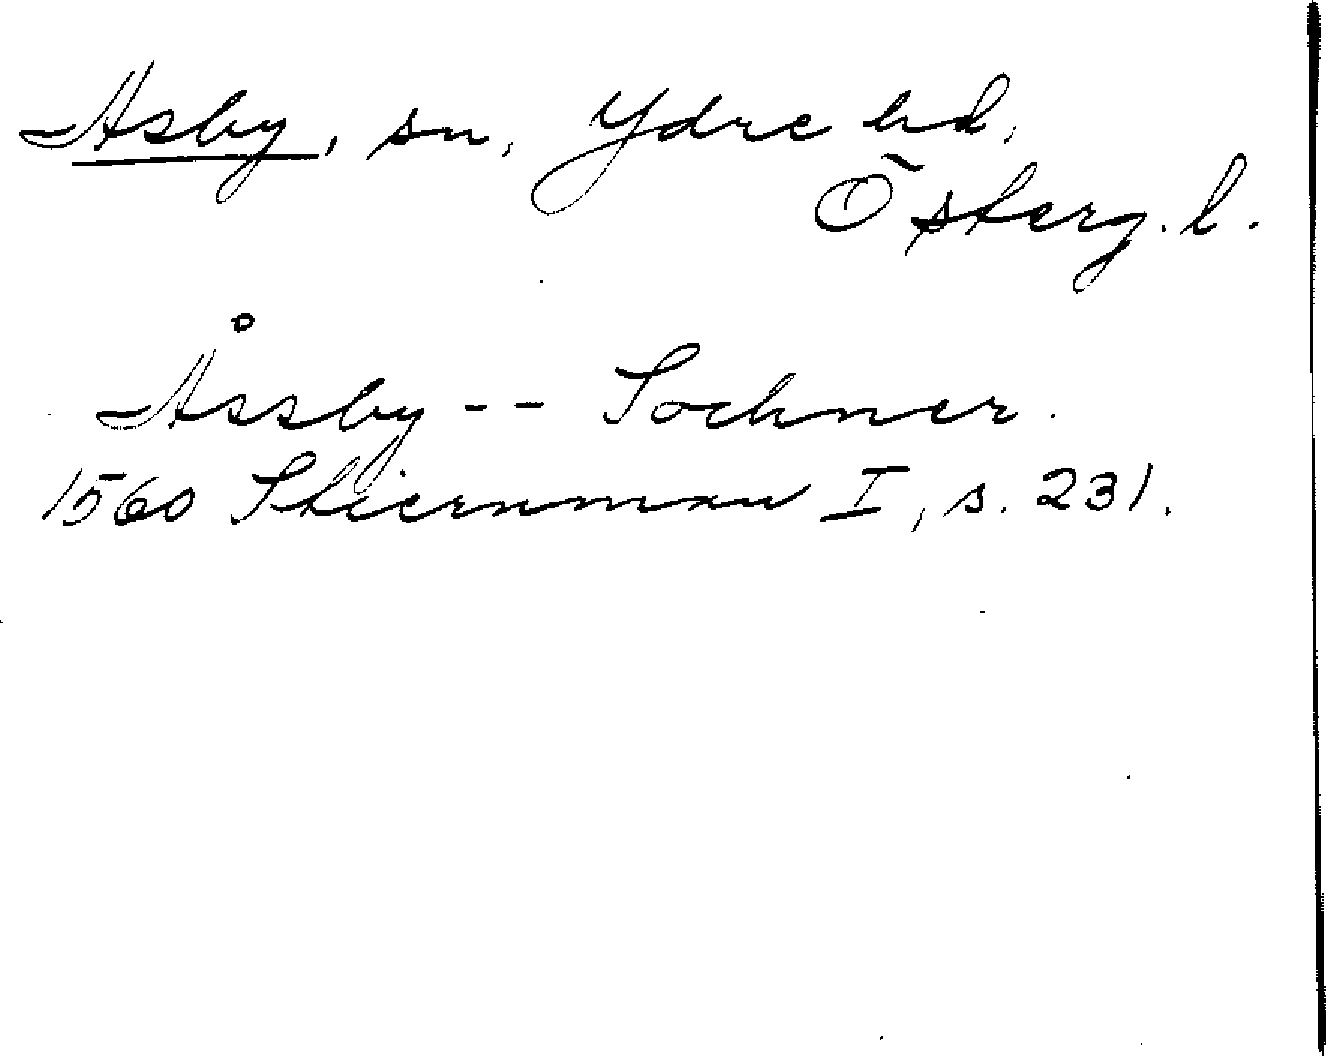 Asby, sn, Ydre hd,
Österg. l.
Åssby -- Sochner.
1560 Stiernman I, s. 231.